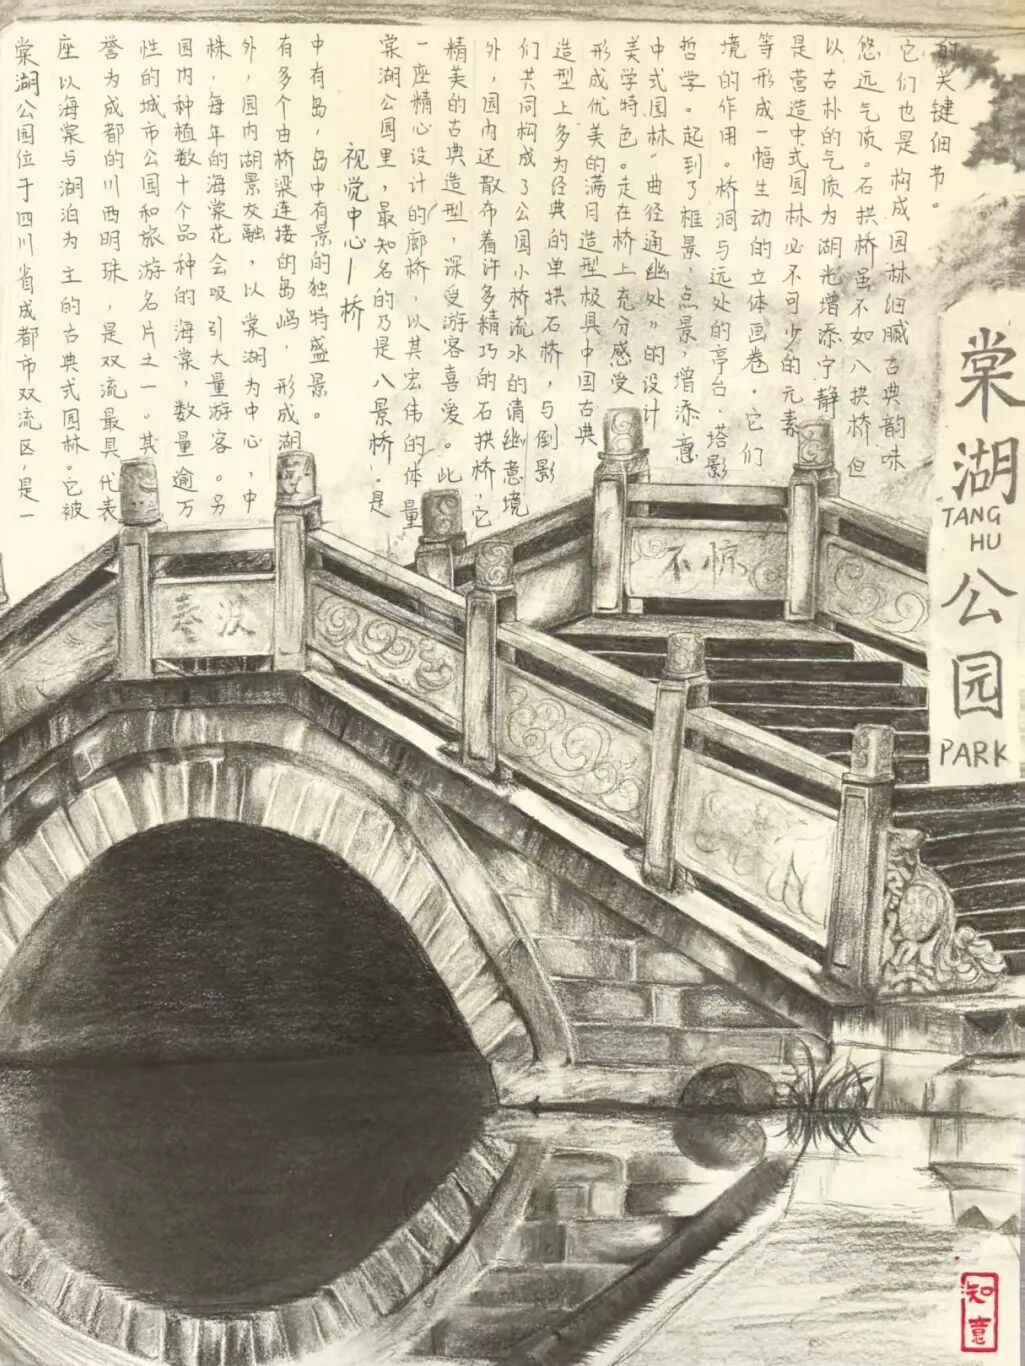 棠湖公园位于四川省成都市双流区,是一
座以海棠与湖泊为主的古典式园林。它被
誉为成都的川西明珠,是双流最具代表
性的城市公园和旅游名片之一。其
园内种植数十个品种的海棠,数量逾万
株,每年的海棠花会吸引大量游客。另
外,园内湖景交融,以棠湖为中心,中
有多个由桥梁连接的岛屿,形成湖
中有岛,岛中有景的独特盛景。
视觉中心—桥
棠湖公园里,最知名的乃是八景桥.是
一座精心设计的廊桥,以其宏伟的体量
精美的古典造型,深受游客喜爱。此
外,园内还散布着许多精巧的石拱桥,它
们共同构成了公园小桥流水的清幽意境
造型上多为经典的单拱石桥,与倒影
形成优美的满月造型极具中国古典
美学特色。走在桥上充分感受
中式园林"曲径通幽处"的设计
哲学。起到了框景,点景,增添意
境的作用。桥洞与远处的亭台.塔影
等形成一幅生动的立体画卷.它们
是营造中式园林必不可少的元素
以古朴的气质为湖光增添宁静
悠远气质。石拱桥虽不如八拱桥,但
它们也是构成园林细腻古典韵味
的关键细节。
棠湖公园
TANG
HU
PARK
不惊
知意